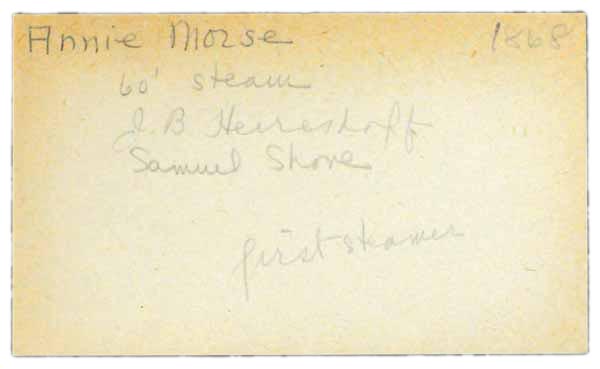 Annie Morse 1868
60' steam
J. B Herreshoff
Samuel Shove
first steamer